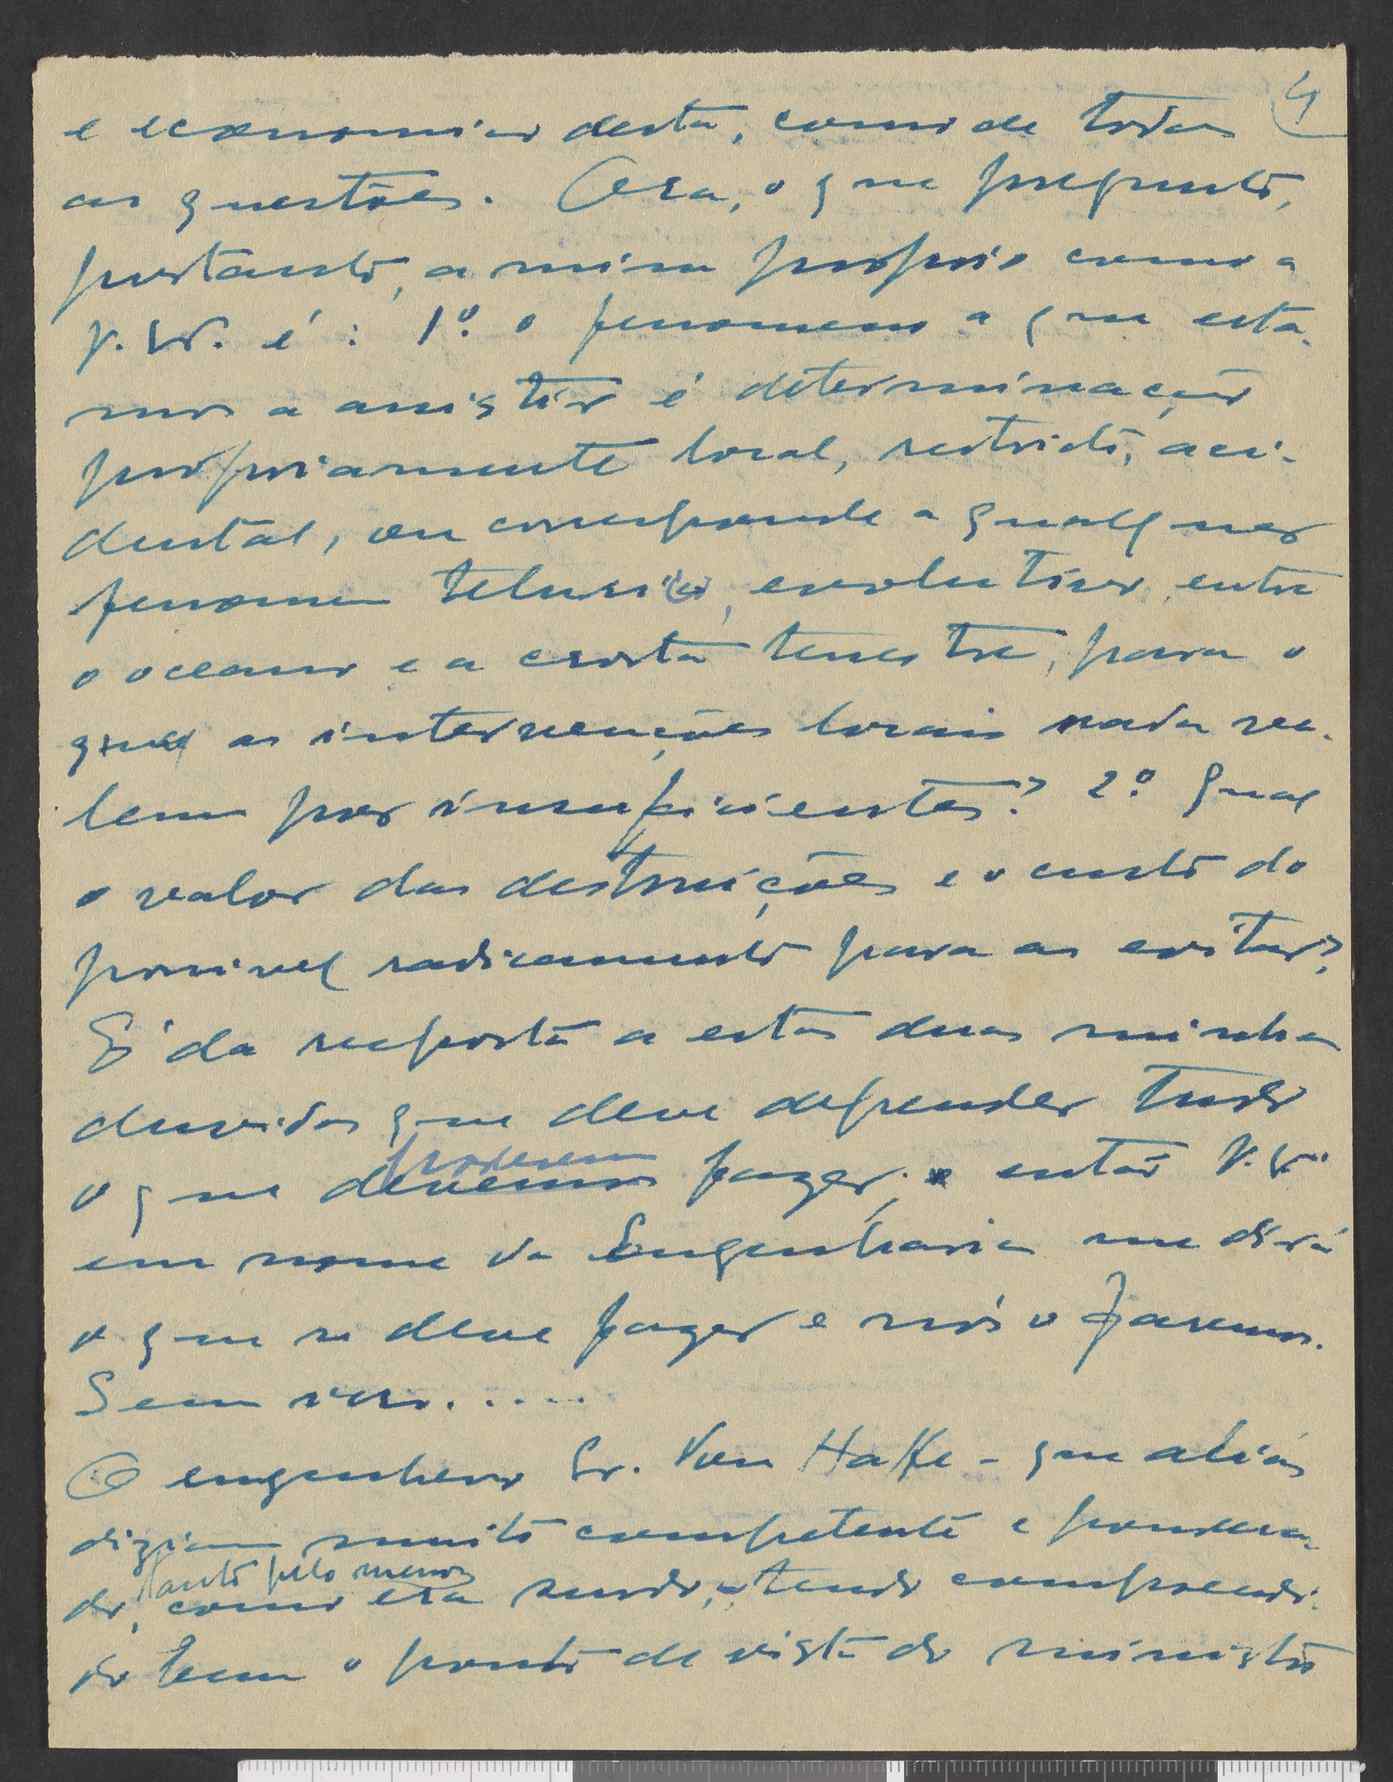 4
e economico desta, como de todas
as questões. Ora, o que pregunto,
portanto, a mim proprio como a
V. Ex. é: 1º. o fenomeno a que esta-
mos a assistir é determinação
propriamente local, restricta, aci-
dental, ou corresponde a qualquer
fenomeno telurico, evolutivo, entre
o oceano e a crosta terrestre, para o
que as intervenções locais nada va-
lem por insuficientes? 2º. Qual
o valor das destruições e o custo do
possivel radicamento para as evitar?
É da resposta a estas duas minhas
duvidas que deve depender tudo
poderemos
o que devemos fazer; então V. Ex.
em nome da Engenharia me dirá
o que se deve fazer e nós o faremos.
Sem isso.....
O engenheiro Sr. Von Haffe - que aliás
diziam muito competente e pondera-
tanto pelo menos
do, como era surdo, tendo compreendi-
do bem o ponto de vista do ministro